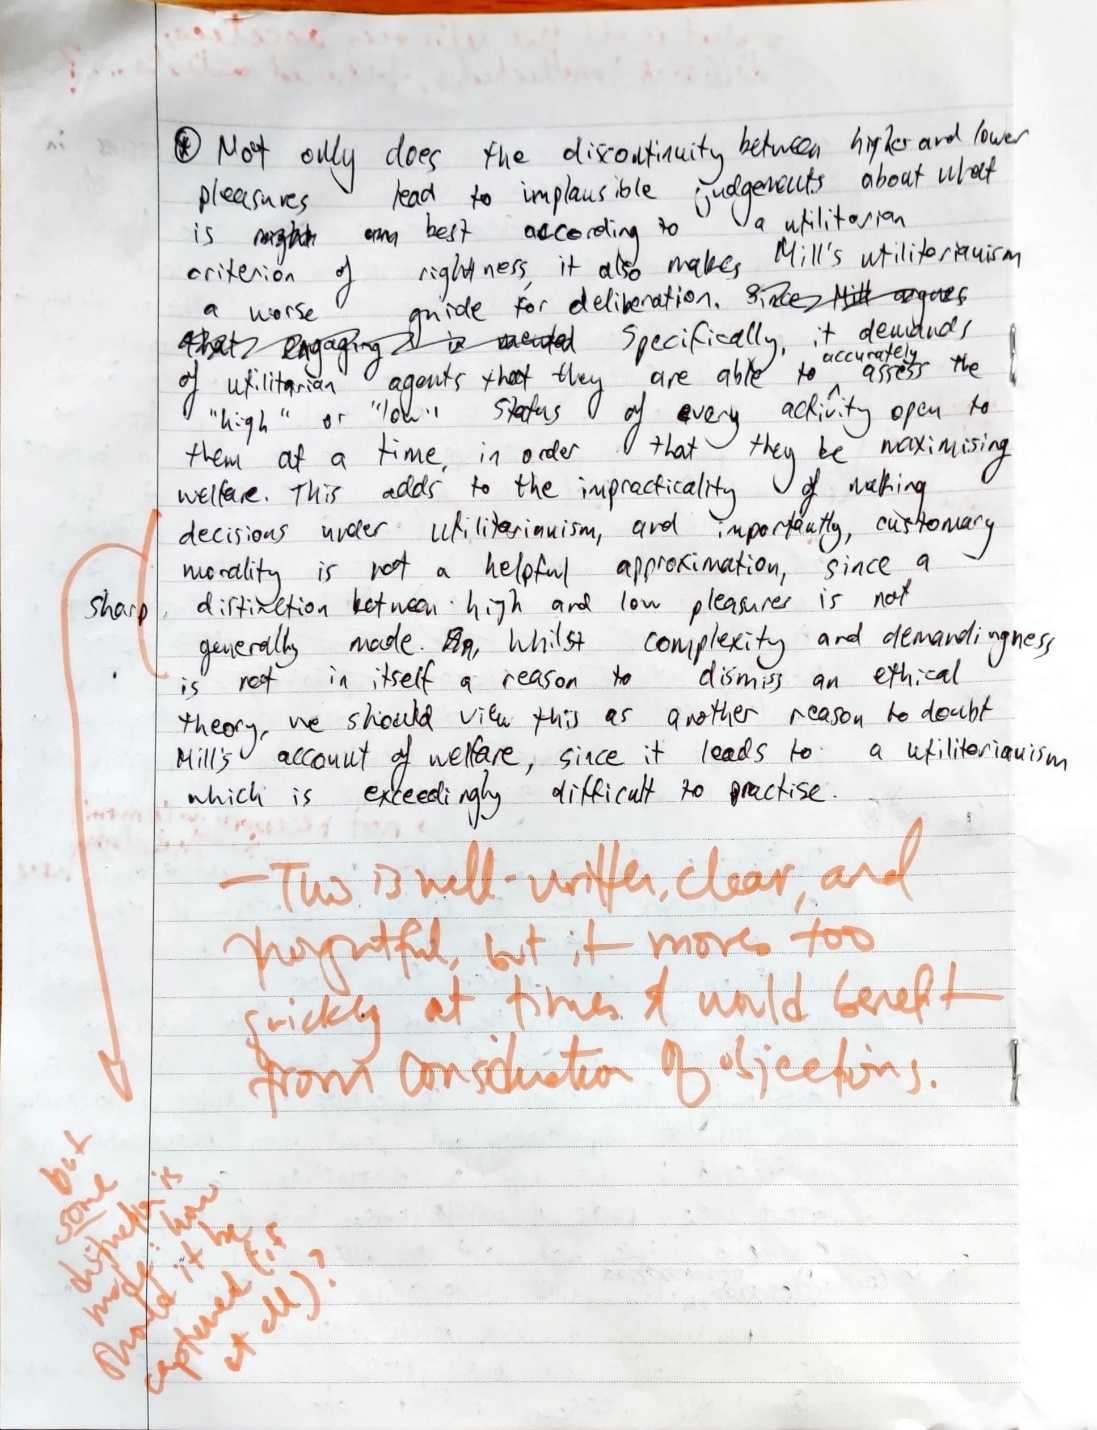 * Not only does the discontinuity between higher and lower
pleasures lead to implausible judgements about what
is best according to a utilitarian
criterion of rightness, it also makes Mill's utilitarianism
a worse guide for deliberation. Since Mill argues
that engaging is needed Specifically, it demands
of utilitarian agents that they are able to accurately assess the
"high" or "low" status of every activity open to
them at a time, in order that they be maximising
welfare. This adds to the impracticality of making
decisions under utilitarianism, and importantly, customary
morality is not a helpful approximation, since a
sharp distinction between high and low pleasures is not
generally made. whilst complexity and demandingness
is not in itself a reason to dismiss an ethical
theory, we should view this as another reason to doubt
Mill's account of welfare, since it leads to a utilitarianism
which is exceedingly difficult to practise.
- This is well-written, clear, and
thoughtful, but it moves too
quickly at times & would benefit
from consideration of objections.
but
some
distinction is
made: how
should it be
captured (if
at all)?